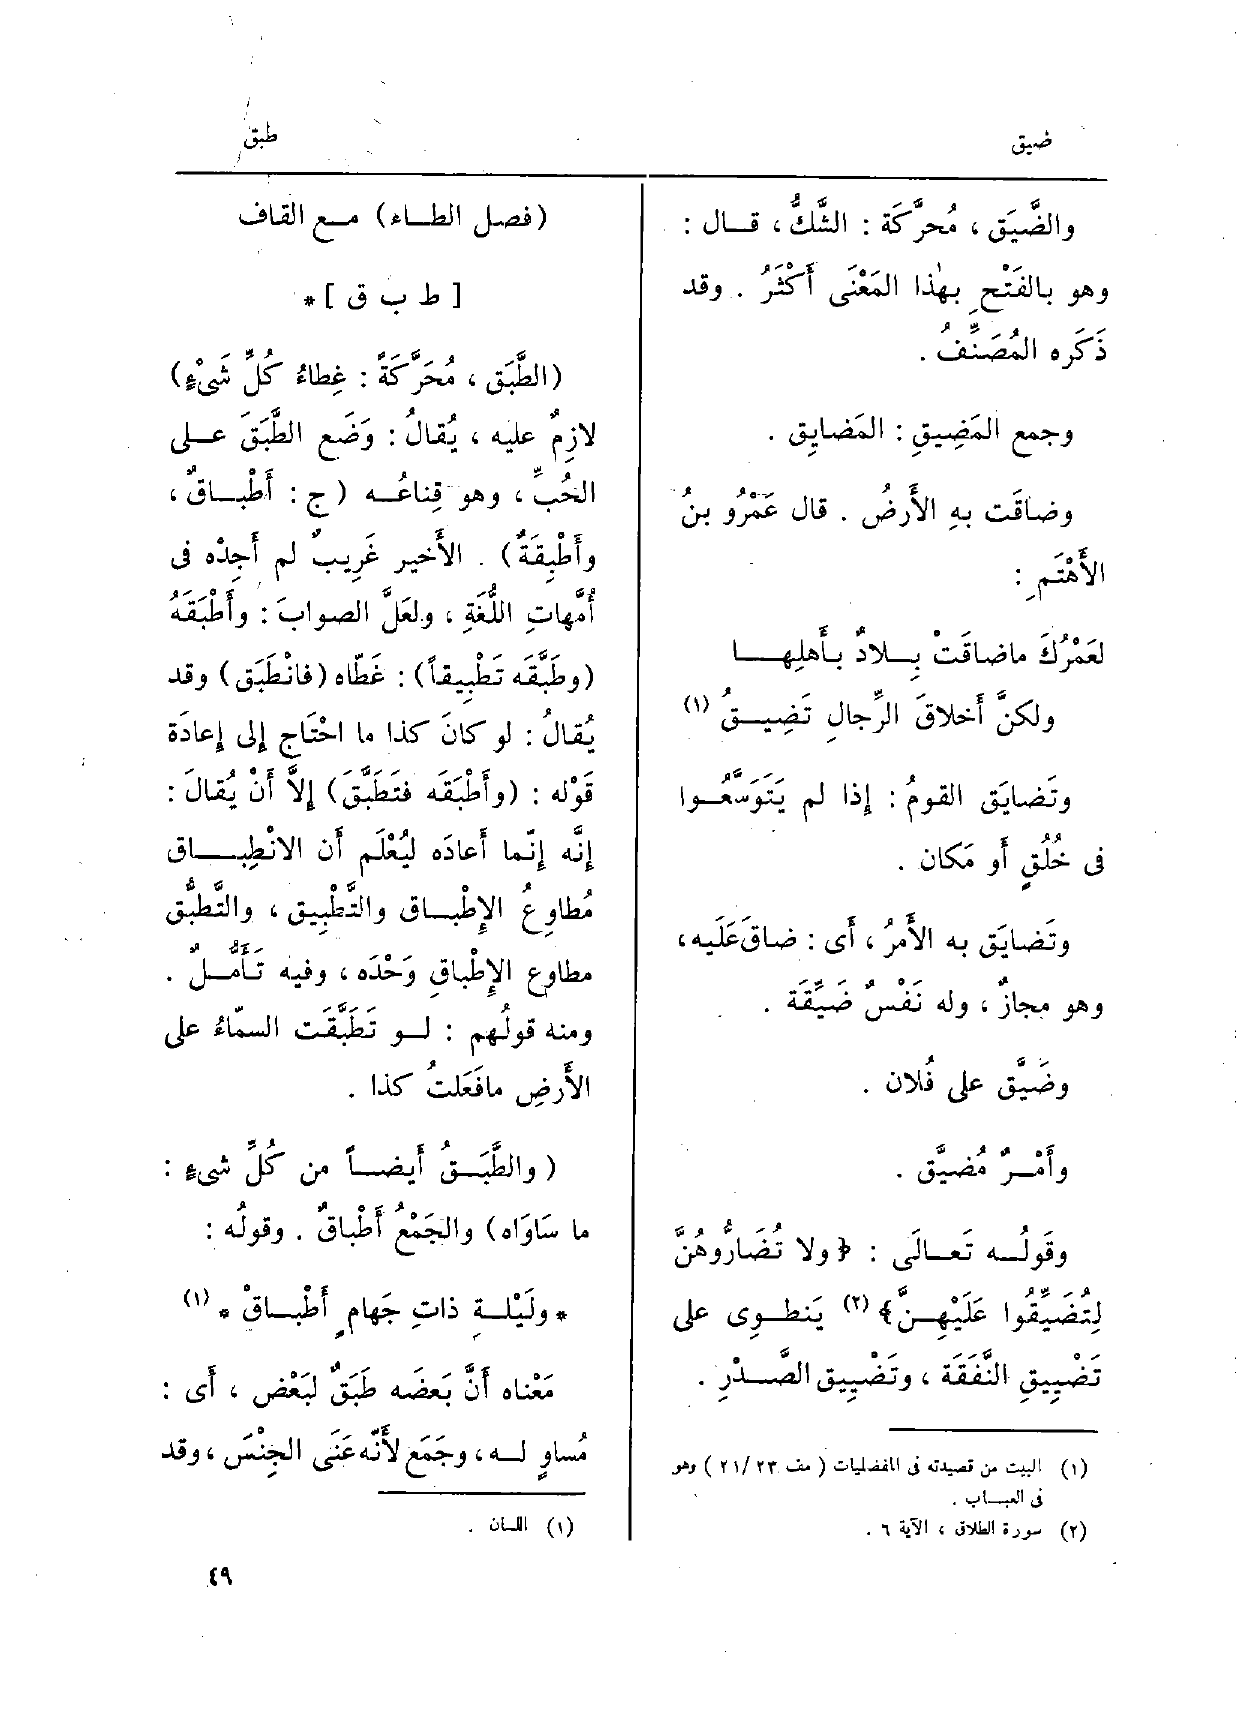 ضيق
طبق
والضَّيَق ، مُحرَّكَة : الشَّكُّ ، قــال :
وهو بالفَتْحِ بهٰذا المَعْنَى أَكْثَرُ . وقد
ذَكَره المُصَنِّفُ .
وجمع المَضِيقِ : المَضايِق .
وضاقَت بهِ الأَرضُ . قال عَمْرُو بنُ
الأَهْتَمِ :
لعَمْرُكَ ماضاقَتْ بِــلادٌ بأَهلِهــا
ولكنَّ أَخلاقَ الرِّجالِ تَضِيــقُ (١)
وتَضايَق القومُ : إِذا لم يَتَوَسَّعُــوا
فى خُلُقٍ أَو مَكان .
وتَضايَق به الأَمرُ ، أَى : ضاقَ عَلَيه ،
وهو مجازٌ ، وله نَفْسٌ ضَيِّقَة .
وضَيَّق على فُلان .
وأَمْــرٌ مُضَيَّق .
وقَولُــه تَعــالَى : ﴿ ولا تُضَارُّوهُنَّ
لِتُضَيِّقُوا عَلَيْهِــنَّ ﴾ (٢) يَنطــوِى على
تَضْيِيقِ النَّفَقَة ، وتَضْيِيق الصَّــدْرِ .
(١) البيت من قصيدته فى المفضليات ( مف ٢٣ /٢١ ) وهو
فى العبــاب .
(٢) سورة الطلاق ، الآية ٦ .
(فصــل الطــاء) مــع القاف
[ ط ب ق ] *
(الطَّبَق ، مُحَرَّكَةً : غِطاءُ كُلِّ شَىْءٍ)
لازِمٌ عليه ، يُقالُ : وَضَع الطَّبَقَ عــلى
الحُبِّ ، وهو قِناعُــه ( ج : أَطْبــاقٌ ،
وأَطْبِقَةٌ) . الأَخير غَرِيبٌ لم أَجِدْه فى
أُمَّهاتِ اللُّغَةِ ، ولعَلَّ الصوابَ : وأَطْبَقَهُ
(وطَبَّقَه تَطْبِيقاً) : غَطَّاه (فانْطَبَق) وقد
يُقالُ : لو كانَ كذا ما احْتَاج إِلى إِعادَة
قَوْله : (وأَطْبَقَه فتَطَبَّقَ) إِلاَّ أَنْ يُقالَ :
إِنَّه إِنَّما أَعادَه ليُعْلَم أَن الانْطِبــاق
مُطاوِعُ الإِطْبــاق والتَّطْبِيق ، والتَّطَبُّق
مطاوع الإِطْباقِ وَحْدَه ، وفيه تَأَمُّــلٌ .
ومنه قولُهم : لــو تَطَبَّقَت السّماءُ على
الأَرضِ مافَعَلتُ كذا .
( والطَّبَــقُ أَيضــاً من كُلِّ شىءٍ :
ما سَاوَاه) والجَمْعُ أَطْباقٌ . وقولُه :
* ولَيْلــةِ ذاتِ جَهامٍ أَطْبــاقْ * (١)
مَعْناه أَنَّ بَعضَه طَبَقٌ لبَعْض ، أَى :
مُساوٍ لــه ، وجَمَع لأَنَّه عَنَى الجِنْسَ ، وقد
(١) اللسان .
٤٩